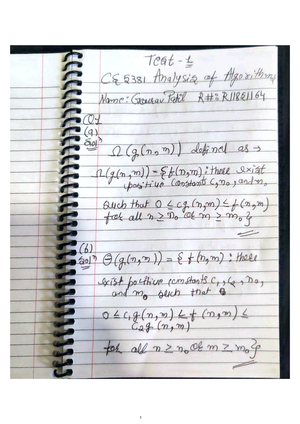 Test - 1
CS 5381 Analysis of Algorithms
Name: Gaurav Patil R#: R11821164
Q1
(a)
Solⁿ
Ω(g(n,m)) defined as →
Ω(g(n,m)) = {f(n,m) : there exist
positive constants c, n₀, and m₀
such that 0 ≤ cg(n,m) ≤ f(n,m)
for all n ≥ n₀ or m ≥ m₀}
(b)
Solⁿ Θ(g(n,m)) = {f(n,m) : there
exist positive constants c₁, c₂, n₀,
and m₀ such that
0 ≤ c₁g(n,m) ≤ f(n,m) ≤
c₂g(n,m)
for all n ≥ n₀ or m ≥ m₀}
1